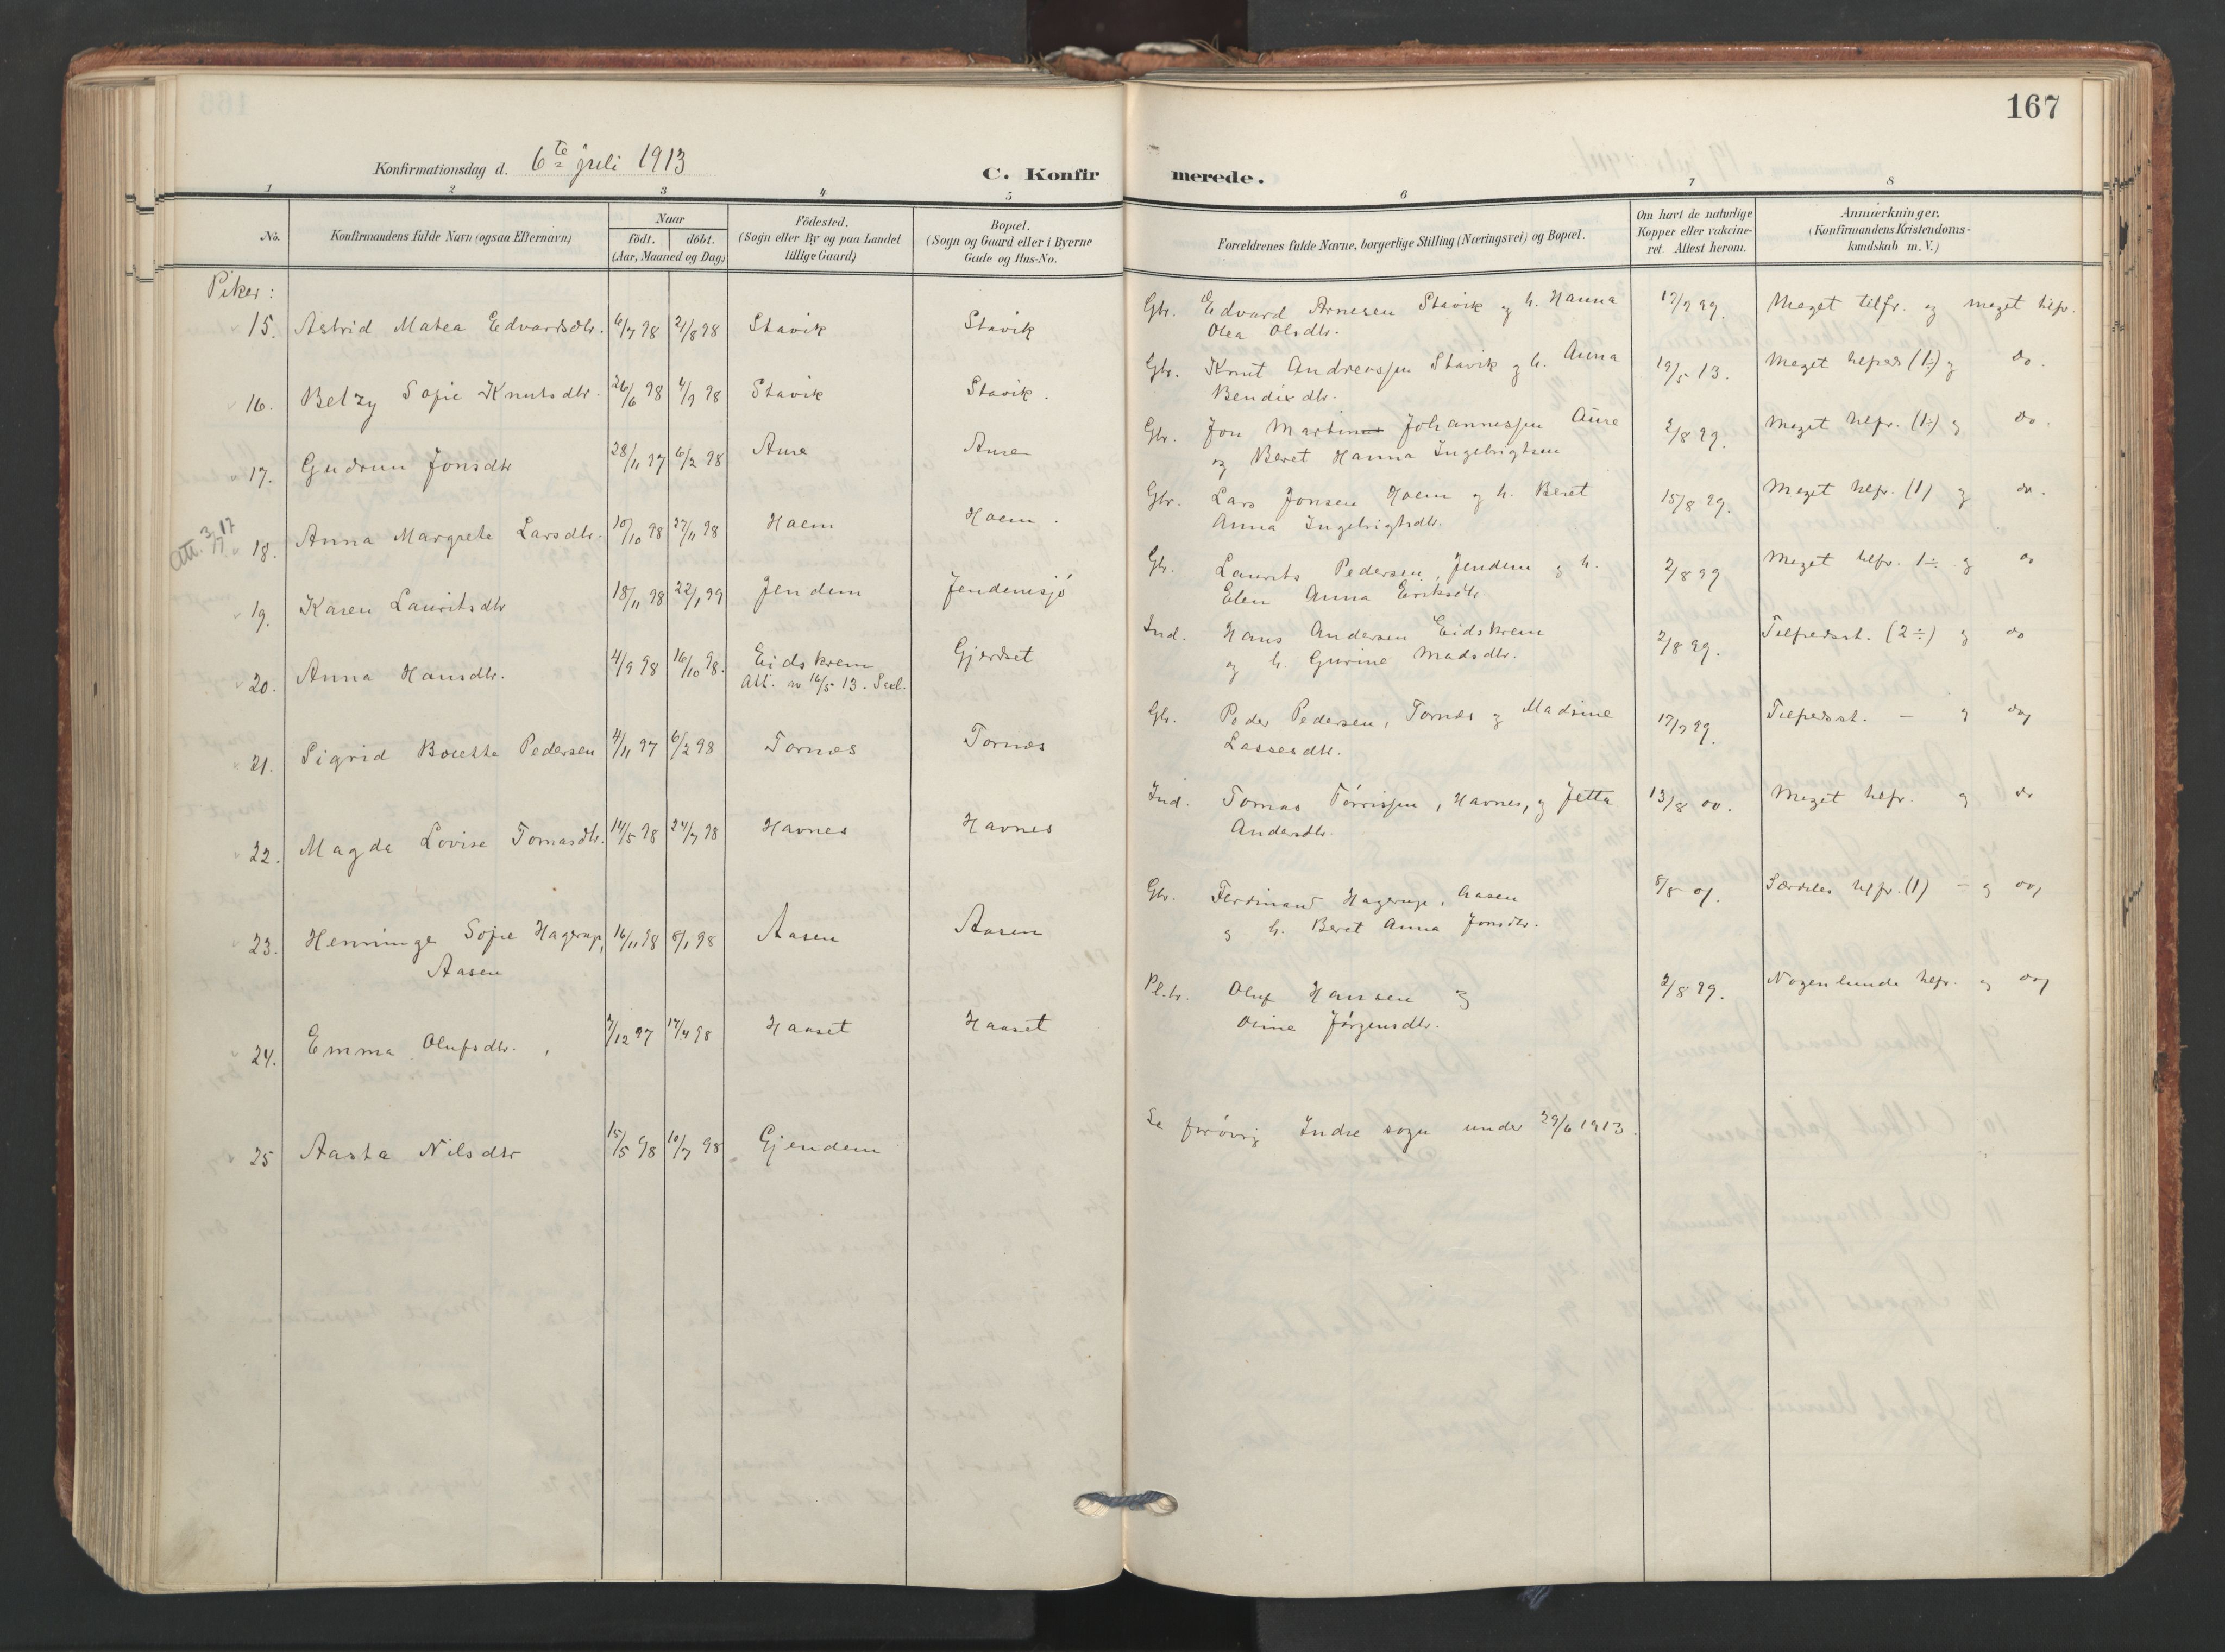 167
Konfirmationsdag d. 6te juli 1913
C. Konfirmerede.
1 2 3 4 5 6 7 8
No.
Konfirmandens fulde Navn (ogsaa Efternavn)
Naar
født. døbt.
(Aar, Maaned og Dag)
Fødested.
(Sogn eller By og paa Landet
tillige Gaard)
Bopæl.
(Sogn og Gaard eller i Byerne
Gade og Hus-No.
Forældrenes fulde Navne, borgerlige Stilling (Næringsvei) og Bopæl.
Om havt de naturlige
Kopper eller vakcine-
ret. Attest herom.
Anmærkninger.
(Konfirmandens Kristendoms-
kundskab m. V.)
Piker:
15. Astrid Matea Edvardsdtr. 6/7 98 21/8 98 Stavik Stavik Gbr. Edvard Arnesen Stavik og h. Hanna 17/7 99. Meget tilfr. og meget hfr.
Olea Olsdtr.
16. Betzy Sofie Knutsdtr. 26/6 98 4/9 98 Stavik Stavik. Gbr. Knut Andreassen Stavik og h. Anna 19/5 13. Meget (1÷) og do.
Bendixdtr.
17. Gudrun Jonsdtr 28/11 97 6/2 98 Aure Aure Gbr. Jon Martin Johannessen Aure 2/8 99. Meget hfr. (1÷) og do.
og Beret Hanna Ingebrigtsen
Att. 3/7 17
18. Anna Margrete Larsdtr. 10/10 98 27/11 98 Haem Haem. Gbr. Lars Jonsen Haem og h. Beret 15/8 99. Meget hfr. (1) og do.
Anna Ingebrigtsdtr.
19. Karen Lauritsdtr 18/11 98 22/1 99 Jendem Jendemsjø Gbr. Laurits Pedersen, Jendem og h. 2/8 99 Meget hfr. 1÷ og do
Elen Anna Eriksdtr.
20. Anna Hansdtr. 4/9 98 16/10 98. Eidskrem Gjerdset Ind. Hans Andersen Eidskrem 2/8 99. Tilfredsst. (2÷) og do
Att. av 16/5 13.
og h. Gurine Madsdtr.
21. Sigrid Bolette Pedersen 4/11 97 6/2 98 Tornes Tornes Gbr. Peder Pedersen, Tornes og Madsine 17/7 99. Tilfredsst. — og do
Lassesdtr.
22. Magda Lovise Tomasdtr. 14/5 98 24/7 98 Havnes Havnes Ind. Tomas Tørrissen, Havnes, og Jetta 13/8 00. Meget hfr. og do
Andersdtr.
23. Henninge Sofie Hagerup, 16/11 98 8/1 98 Aasen Aasen Gbr. Ferdinand Hagerup, Aasen 8/8 01. Særdeles hfr. (1) — og do
Aasen
og h. Beret Anna Jonsdtr.
24. Emma Olufsdtr. 7/12 97 17/4 98 Haaset Haaset Pl.br. Oluf Hansen og 2/8 99. Nogenlunde hfr. og do
Oline Jørgensdtr.
25 Aasta Nilsdtr 15/5 98 10/7 98 Gjendem Se forøvrig Indre sogn under 29/6 1913.